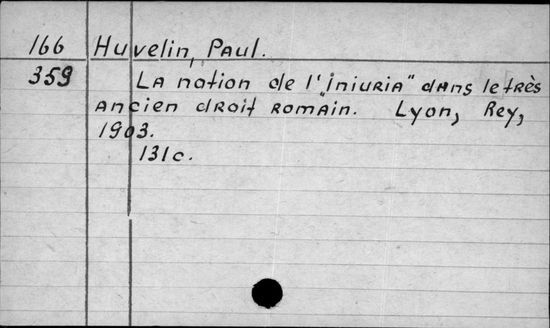 166 Huvelin, Paul.
359 La notion de l'„iniuria" dans le très
ancien droit romain. Lyon, Rey,
1903.
131c.